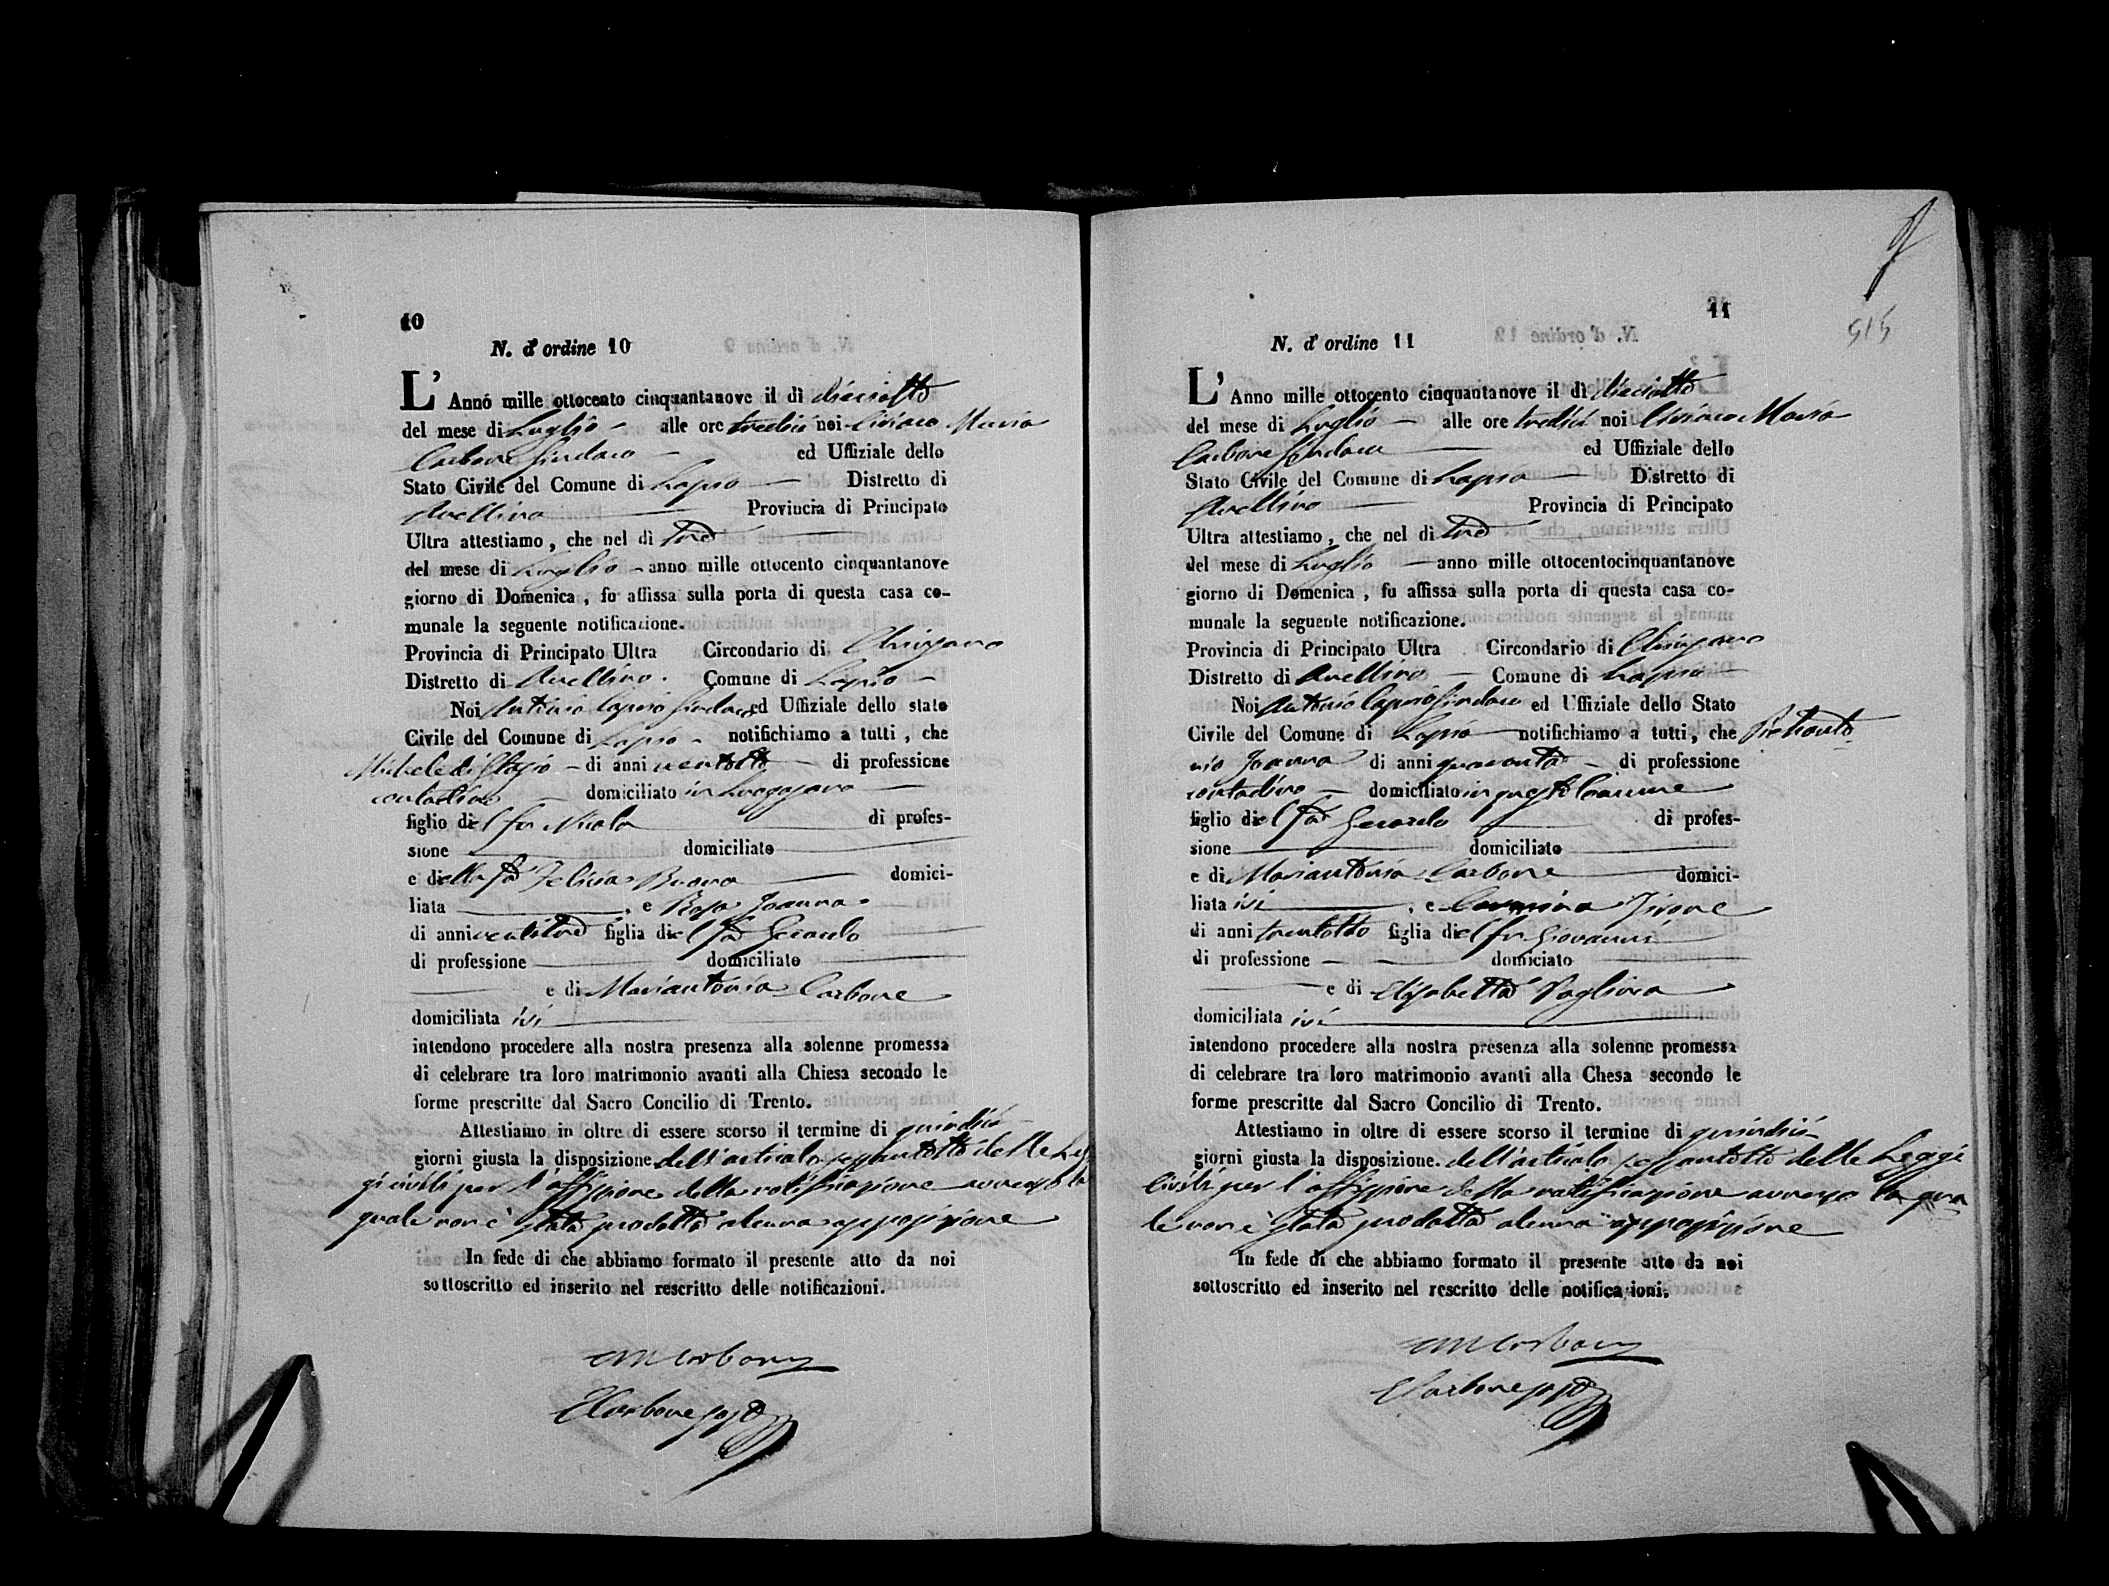 10
N. d'ordine 10
L'Anno mille ottocento cinquantanove il dì dieciotto
del mese di Luglio alle ore tredici noi Ciriaco Maria
Carbone Sindaco ed Uffiziale dello
Stato Civile del Comune di Lapio Distretto di
Avellino Provincia di Principato
Ultra attestiamo, che nel dì tre
del mese di Luglio anno mille ottocento cinquantanove
giorno di Domenica, fu affissa sulla porta di questa casa co-
munale la seguente notificazione.
Provincia di Principato Ultra Circondario di Chiusano
Distretto di Avellino. Comune di Lapio
Noi Antonio Caprio Sindaco ed Uffiziale dello stato
Civile del Comune di Lapio notifichiamo a tutti, che
Michele di Blasio di anni ventotto di professione
contadino domiciliato in Luogosano
figlio del fu Nicola di profes-
sione domiciliato
e della fu Felicia Buono domici-
liata , e Rosa Joanna
di anni ventitre figlia del fu Gerardo
di professione domiciliato
e di Mariantonia Carbone
domiciliata ivi
intendono procedere alla nostra presenza alla solenne promessa
di celebrare tra loro matrimonio avanti alla Chiesa secondo le
forme prescritte dal Sacro Concilio di Trento.
Attestiamo in oltre di essere scorso il termine di quindici
giorni giusta la disposizione dell'articolo sessantotto delle Leg
gi civili per l'affissione della notificazione avverso la
quale non è stata prodotta alcuna opposizione
In fede di che abbiamo formato il presente atto da noi
sottoscritto ed inserito nel rescritto delle notificazioni.
CM Carbone
Carbone
11
515
N. d'ordine 11
L'Anno mille ottocento cinquantanove il dì dieciotto
del mese di Luglio alle ore tredici noi Ciriaco Maria
Carbone Sindaco ed Uffiziale dello
Stato Civile del Comune di Lapio Distretto di
Avellino Provincia di Principato
Ultra attestiamo, che nel dì tre
del mese di Luglio anno mille ottocentocinquantanove
giorno di Domenica, fu affissa sulla porta di questa casa co-
munale la seguente notificazione.
Provincia di Principato Ultra Circondario di Chiusano
Distretto di Avellino Comune di Lapio
Noi Antonio Caprio Sindaco ed Uffiziale dello Stato
Civile del Comune di Lapio notifichiamo a tutti, che Pietranto
nio Joanna di anni quaranta di professione
contadino domiciliato in questo Comune
figlio del fu Gerardo di profes-
sione domiciliato
e di Mariantonia Carbone domici-
liata ivi , e Carmina Jirone
di anni trentotto figlia del fu Giovanni
di professione domiciato
e di Elisabetta Paglina
domiciliata ivi
intendono procedere alla nostra presenza alla solenne promessa
di celebrare tra loro matrimonio avanti alla Chesa secondo le
forme prescritte dal Sacro Concilio di Trento.
Attestiamo in oltre di essere scorso il termine di quindici
giorni giusta la disposizione. dell'articolo sessantotto delle Leggi
Civili per l'affissione della notificazione avverso la qua
le non è stata prodotta alcuna opposizione
In fede di che abbiamo formato il presente atto da noi
sottoscritto ed inserito nel rescritto delle notificazioni.
CM Carbone
Carbone